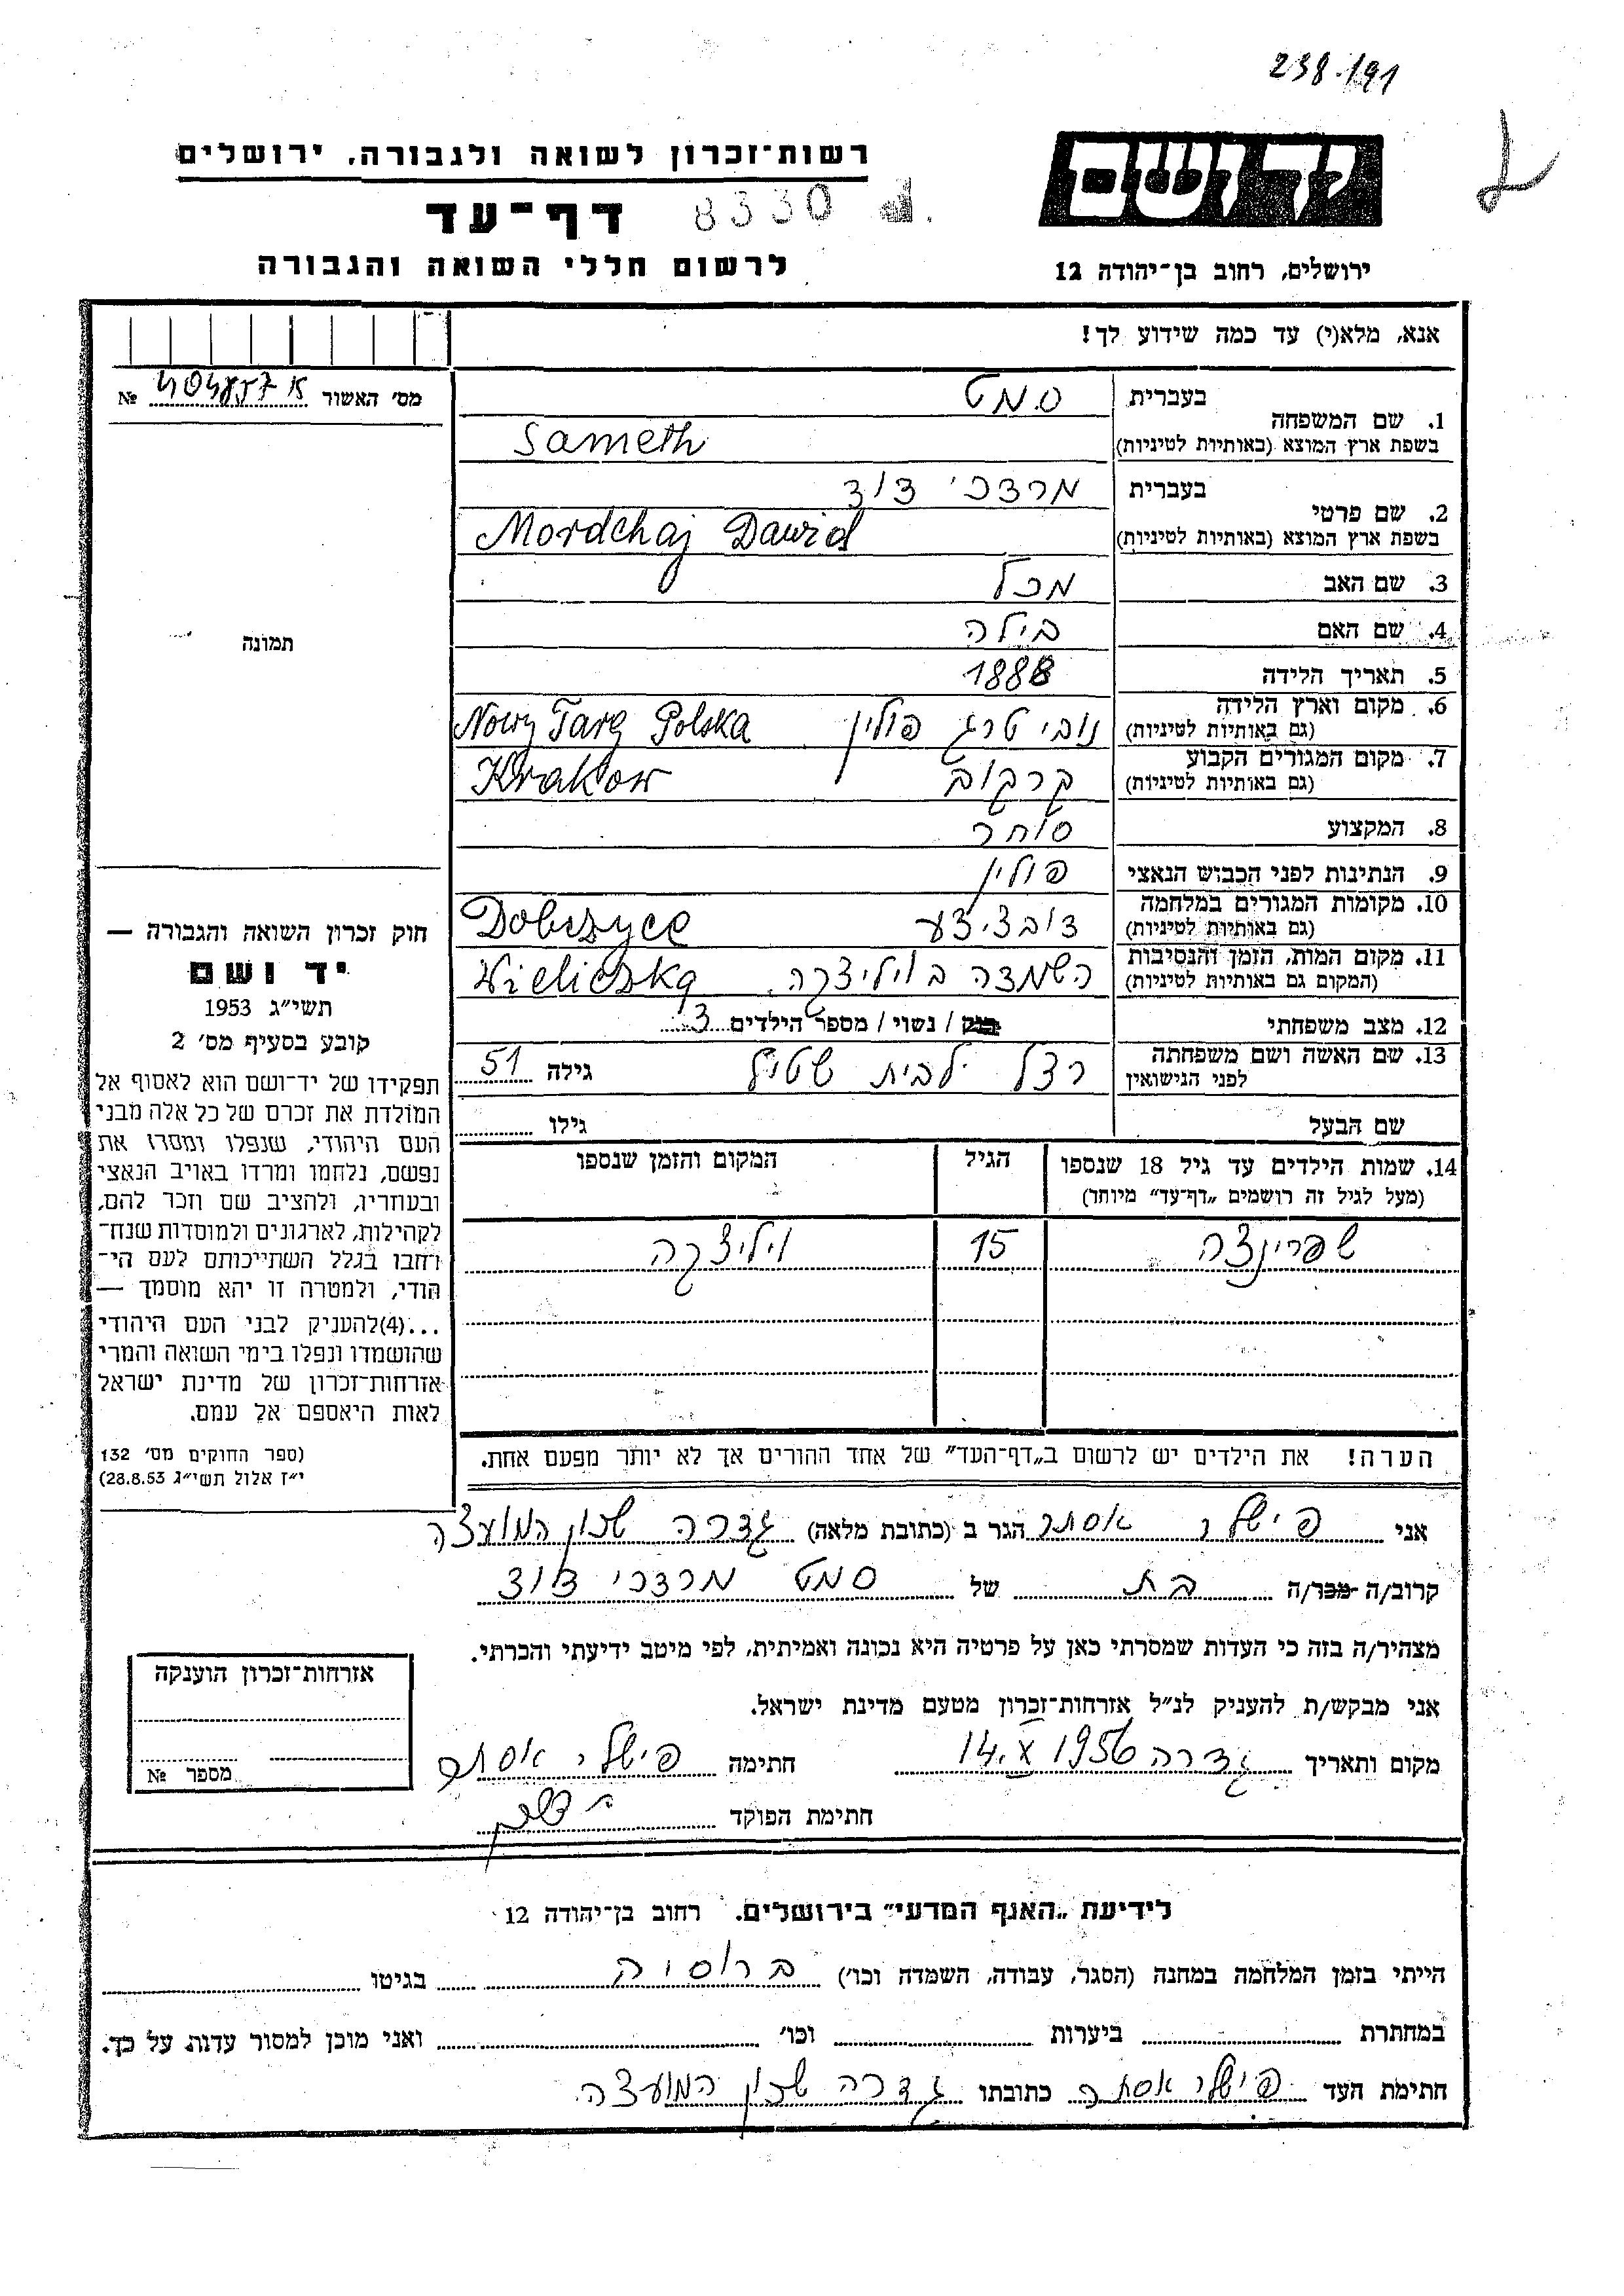 238/191
רשות־זכרון לשואה ולגבורה, ירושלים
יד ושם
דף־עד 8330
לרשום חללי השואה והגבורה
ירושלים, רחוב בן־יהודה 12
אנא, מלא(י) עד כמה שידוע לך!
מס' האשור №
1. שם המשפחה
בעברית סמט
בשפת ארץ המוצא (באותיות לטיניות) Sameth
2. שם פרטי
בעברית מרדכי דוד
בשפת ארץ המוצא (באותיות לטיניות) Mordchaj Dawid
3. שם האב מכל
4. שם האם בילה
5. תאריך הלידה 1888
6. מקום וארץ הלידה
(גם באותיות לטיניות) נובי טרג פולין Nowy Targ Polska
7. מקום המגורים הקבוע
(גם באותיות לטיניות) קרקוב Krakow
8. המקצוע סוחר
9. הנתינות לפני הכבוש הנאצי פולין
10. מקומות המגורים במלחמה
(גם באותיות לטיניות) דובצ'יצע Dobczyce
11. מקום המות, הזמן והנסיבות
(המקום גם באותיות לטיניות) השמדה בויליצקה Wieliczka
12. מצב משפחתי רווק / נשוי / מספר הילדים 3
13. שם האשה ושם משפחתה
לפני הנישואין רצל לבית שטיל גילה 51
שם הבעל גילו
14. שמות הילדים עד גיל 18 שנספו הגיל המקום והזמן שנספו
(מעל לגיל זה רושמים „דף־עד" מיוחד)
שפרינצה 15 ויליצקה
הערה! את הילדים יש לרשום ב„דף־העד" של אחד ההורים אך לא יותר מפעם אחת.
תמונה
חוק זכרון השואה והגבורה —
יד ושם
תשי"ג 1953
קובע בסעיף מס' 2
תפקידו של יד־ושם הוא לאסוף אל
המולדת את זכרם של כל אלה מבני
העם היהודי, שנפלו ומסרו את
נפשם, נלחמו ומרדו באויב הנאצי
ובעוזריו, ולהציב שם וזכר להם,
לקהילות, לארגונים ולמוסדות שנח־
רחבו בגלל השתייכותם לעם הי־
הודי, ולמטרה זו יהא מוסמך —
...(4)להעניק לבני העם היהודי
שהושמדו ונפלו בימי השואה והמרי
אזרחות־זכרון של מדינת ישראל
לאות היאספם אל עמם.
(ספר החוקים מס' 132
י"ז אלול תשי"ג 28.8.53)
אני פישלר אסתר הגר ב (כתובת מלאה) גדרה שכון המועצה
קרוב/ה מכר/ה בת של סמט מרדכי דוד
מצהיר/ה בזה כי העדות שמסרתי כאן על פרטיה היא נכונה ואמיתית, לפי מיטב ידיעתי והכרתי.
אני מבקש/ת להעניק לנ"ל אזרחות־זכרון מטעם מדינת ישראל.
מקום ותאריך גדרה 14.X 1956 חתימה פישלר אסתר
חתימת הפוקד
אזרחות־זכרון הוענקה
מספר №
לידיעת „האגף המדעי" בירושלים. רחוב בן־יהודה 12
הייתי בזמן המלחמה במחנה (הסגר, עבודה, השמדה וכו') ברוסיה בגיטו
במחתרת ביערות וכו' ואני מוכן למסור עדות על כך.
חתימת העד פישלר אסתר כתובתו גדרה שכון המועצה